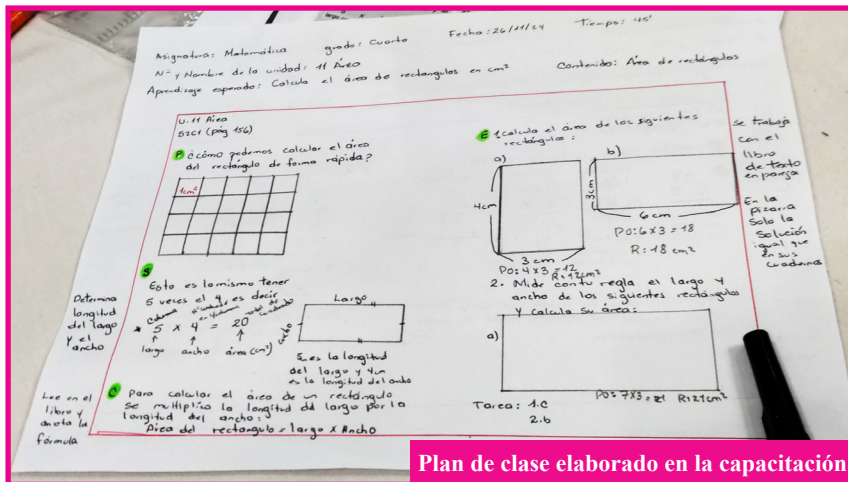 Asignatura: Matemática grado: Cuarto Fecha: 26/11/24 Tiempo: 45'
Nº y Nombre de la unidad: 11 Área Contenido: Área de rectángulos
Aprendizaje esperado: Calcula el área de rectangulos en cm²
U. 11 Área
S2C1 (pág 156)
P ¿cómo podemos calcular el área
del rectángulo de forma rápida?
1cm²
S
Esto es lo mismo tener
5 veces el 4 es decir
columna
* 5 x 4 = 20
largo ancho área (cm²)
Determina
longitud
del largo
y el
ancho
Largo
ancho
5 es la longitud
del largo y 4
es la longitud del ancho
C Para calcular el área de un rectángulo
se multiplica la longitud del largo por la
longitud del ancho:
Área del rectangulo = largo x Ancho
Lee en el
libro y
anota la
fórmula
E 1. Calcula el área de los siguientes
rectángulos:
a)
4cm
3 cm
PO: 4 x 3 = 12
R: 12cm²
b)
3cm
6 cm
PO: 6 x 3 = 18
R: 18 cm²
2. Mide con tu regla el largo y
ancho de los siguientes rectángulos
y calcula su área:
a)
PO: 7x3 = 21 R: 21cm²
Tarea: 1.c
2.b
se trabaja
con el
libro
de texto
en pareja
En la
pizarra
Solo la
Solución
igual que
en sus
cuadernos
Plan de clase elaborado en la capacitación